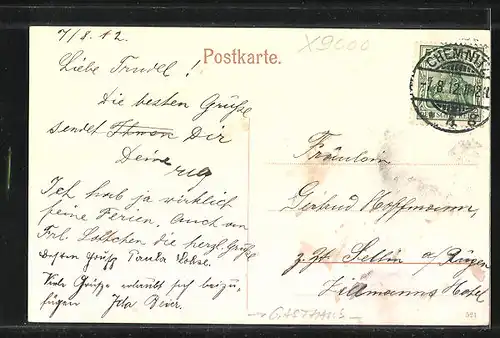 7/8.12.
Postkarte.
X9000
Liebe Trudel!
CHEMNITZ
Die besten Grüße
sendet Ihnen Dir
Deine
Ich hab ja wirklich
keine Ferien, auch an
Frl. Lottchen die herzl. Grüße
besten Gruß Paula
Viele Grüße erlaubt sich beizu-
fügen
Fräulein
Gertrud Hoffmann,
z. Zt. Sellin a/Rügen
Zillmanns Hotel
GASTHAUS
521